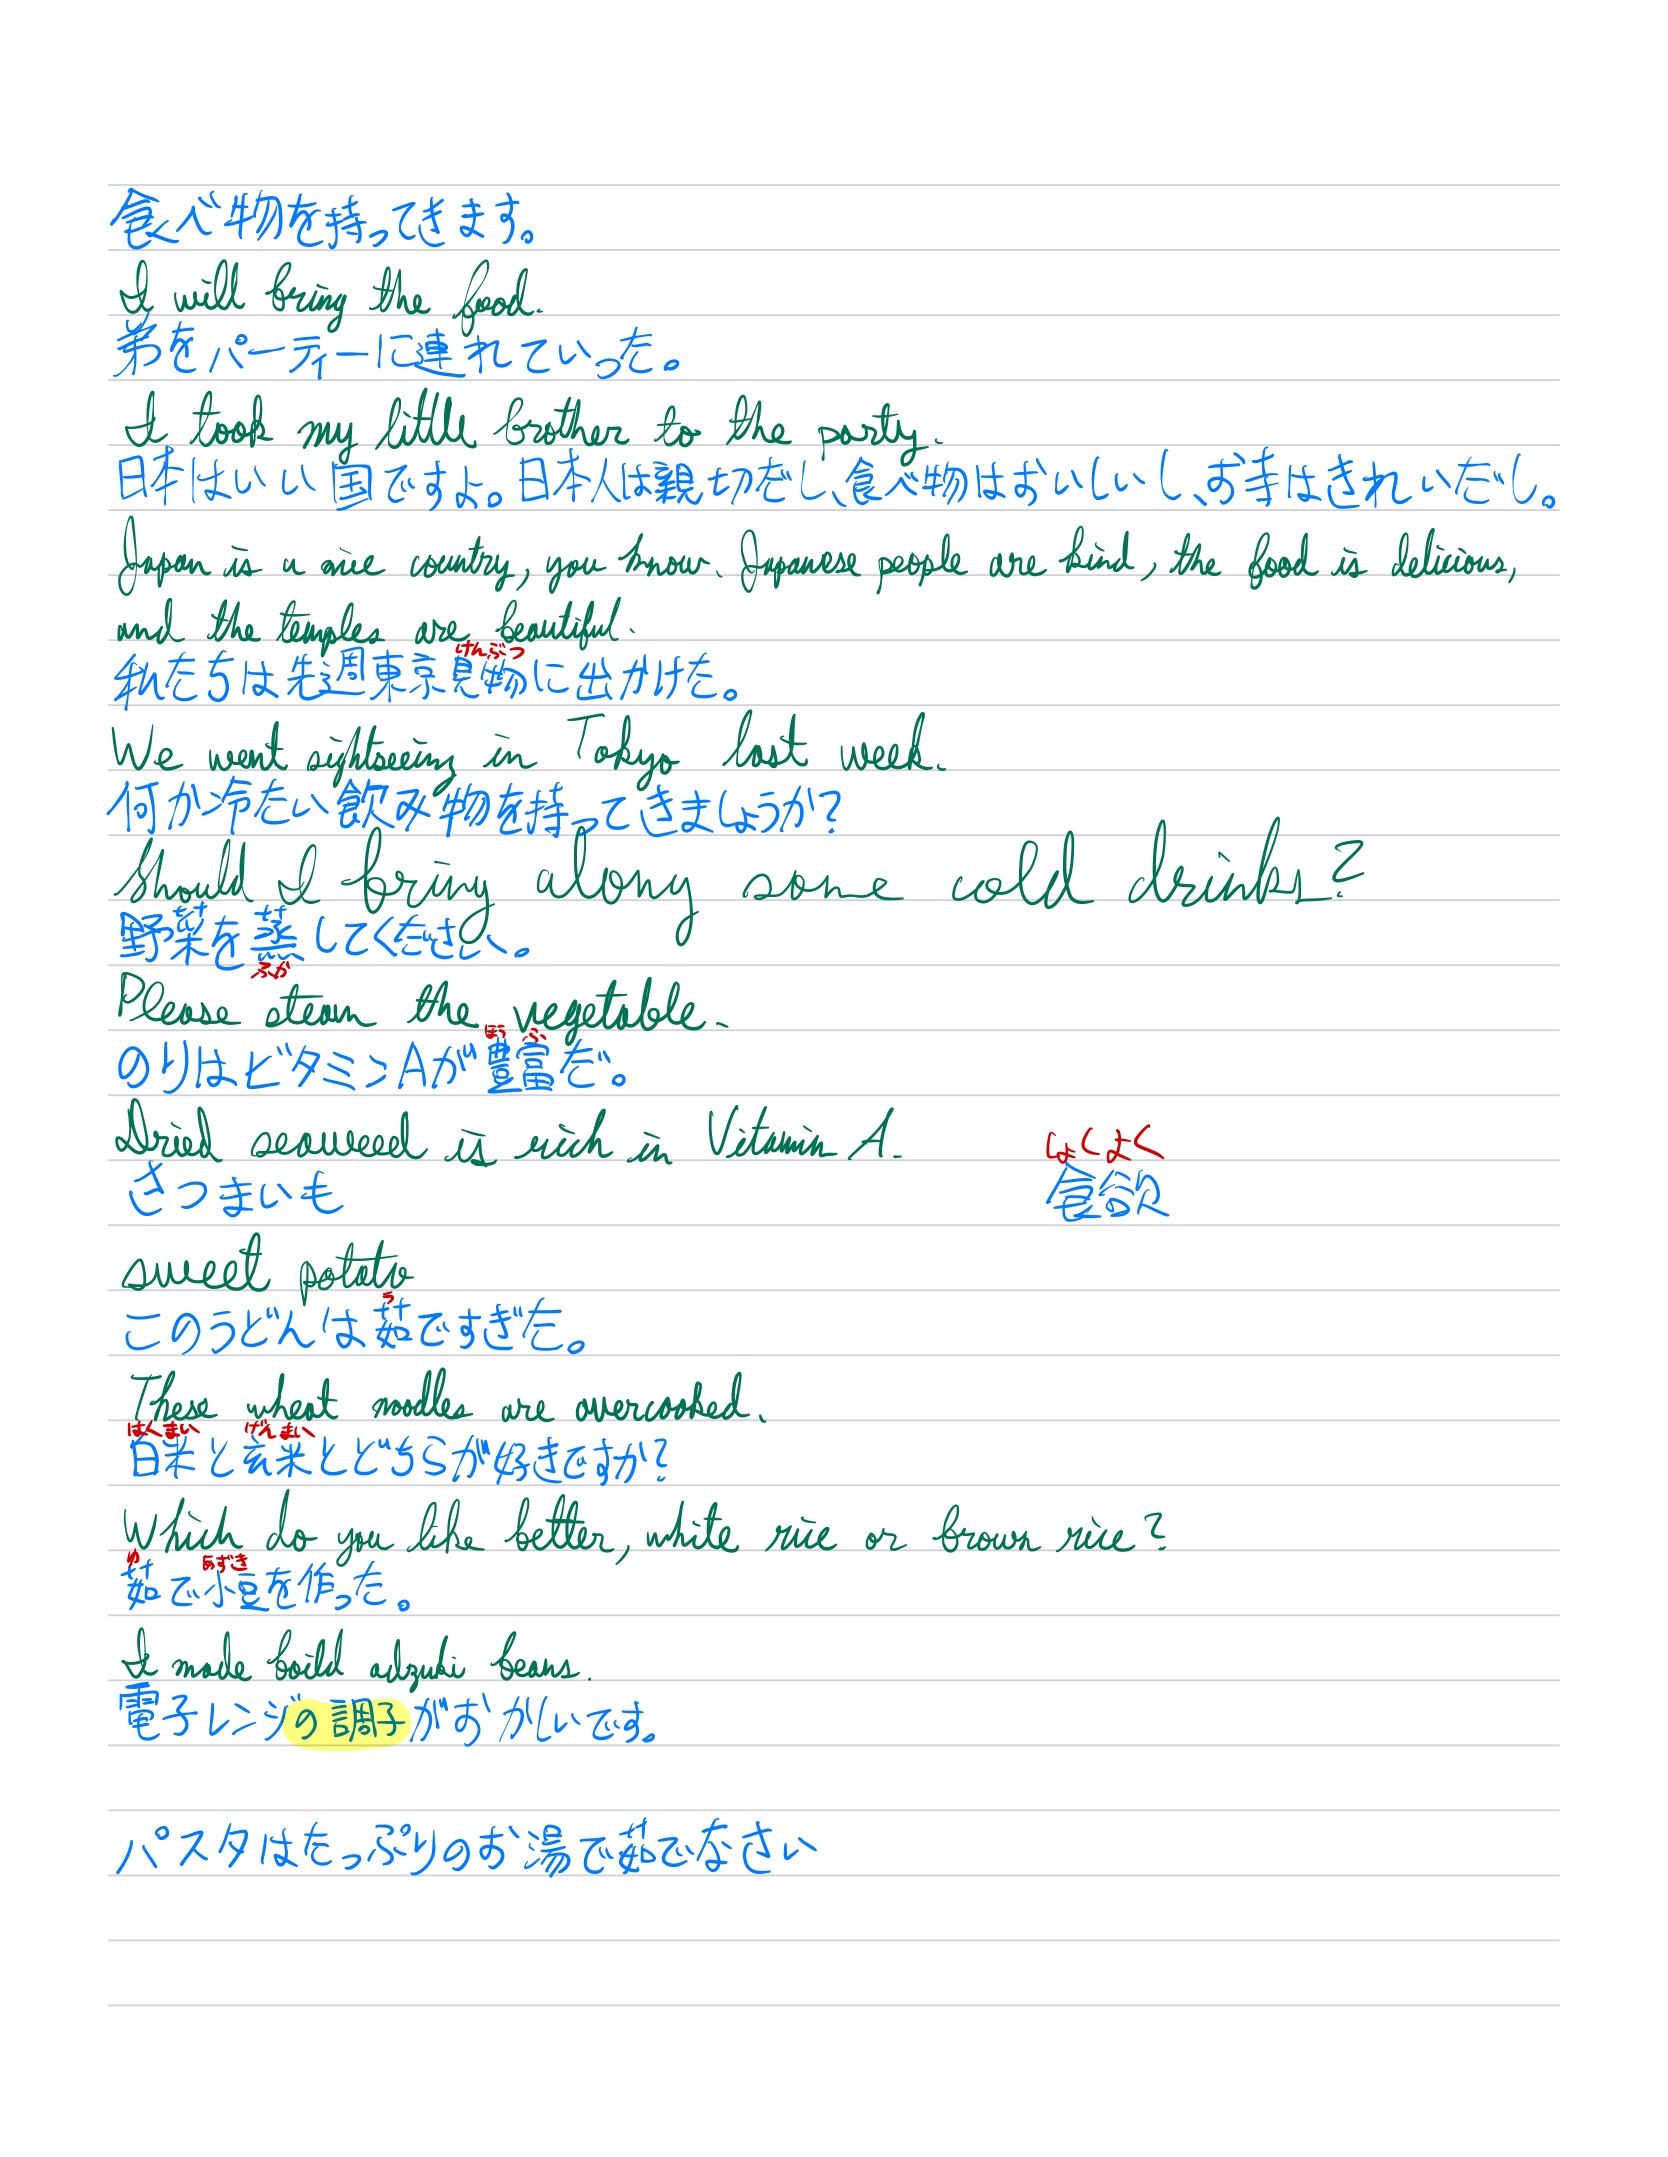 食べ物を持ってきます。
I will bring the food.
弟をパーティーに連れていった。
I took my little brother to the party.
日本はいい国ですよ。日本人は親切だし、食べ物はおいしいし、お寺はきれいだし。
Japan is a nice country, you know. Japanese people are kind, the food is delicious,
and the temples are beautiful.
けんぶつ
私たちは先週東京見物に出かけた。
We went sightseeing in Tokyo last week.
何か冷たい飲み物を持ってきましょうか?
Should I bring along some cold drinks?
野菜を蒸してください。
ふか
Please steam the vegetable.
ほう ふ
のりはビタミンAが豊富だ。
Dried seaweed is rich in Vitamin A.
しょくよく
さつまいも 食欲
sweet potato
う
このうどんは茹ですぎた。
These wheat noodles are overcooked.
はくまい げんまい
白米と玄米とどちらが好きですか?
Which do you like better, white rice or brown rice?
ゆ あずき
茹で小豆を作った。
I made boild adzuki beans.
電子レンジの調子がおかしいです。
パスタはたっぷりのお湯で茹でなさい